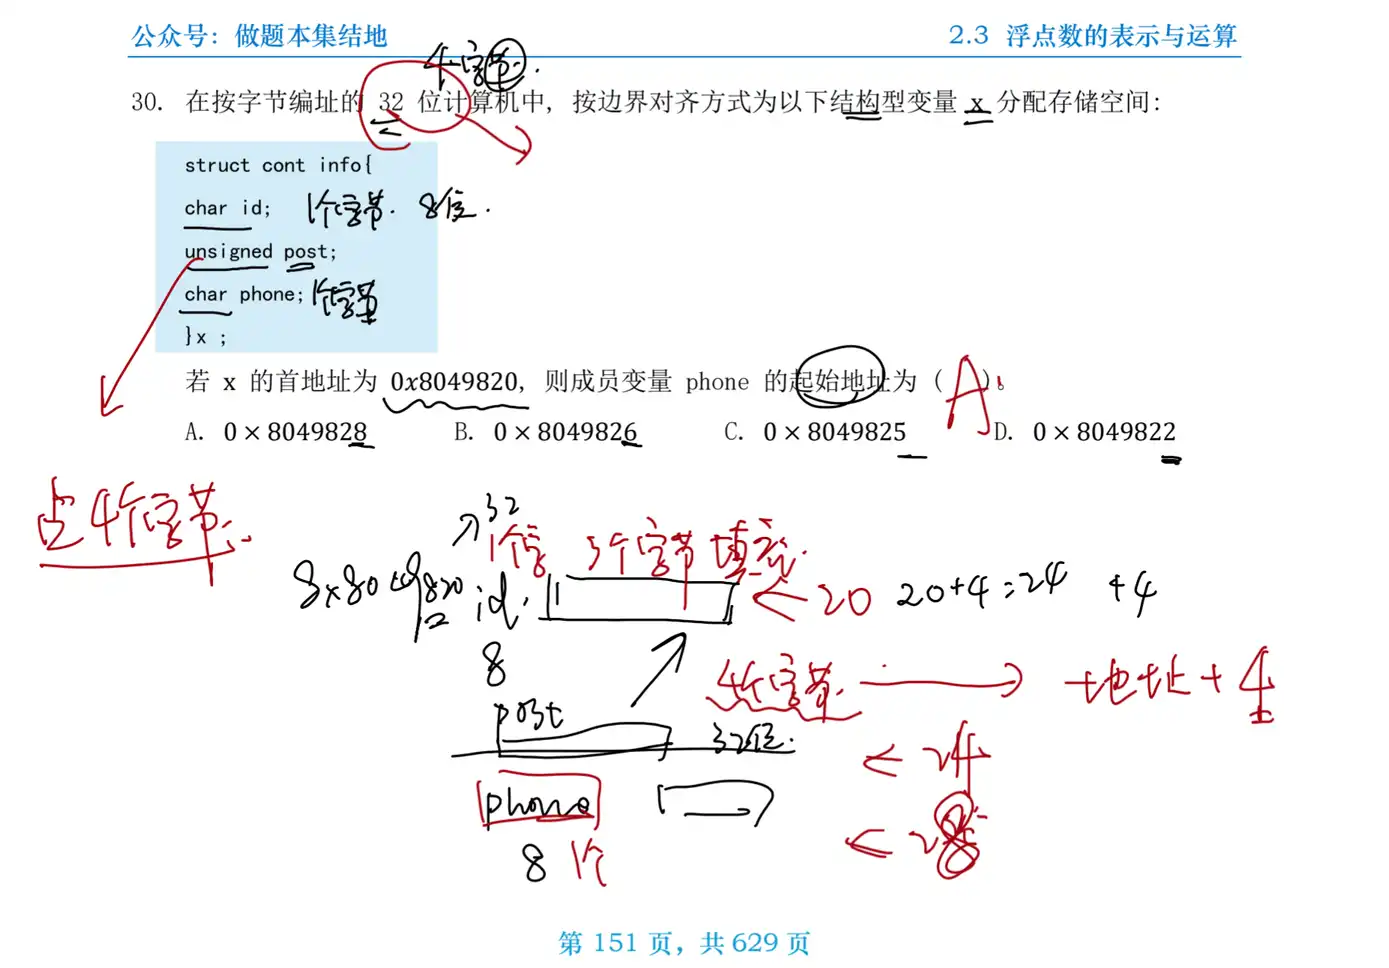 公众号：做题本集结地 2.3 浮点数的表示与运算
4个字节.
30. 在按字节编址的 32 位计算机中，按边界对齐方式为以下结构型变量 x 分配存储空间：
struct cont info{
char id; 1个字节. 8位.
unsigned post;
char phone; 1个字节
}x ;
若 x 的首地址为 0x8049820，则成员变量 phone 的起始地址为（ A ）。
A. 0 × 8049828 B. 0 × 8049826 C. 0 × 8049825 D. 0 × 8049822
占4个字节.
32
1个字 3个字节填充.
id. 20 20+4=24 +4
8
4个字节. 地址+4
post 32位.
24
phone
8 1个 28
第 151 页，共 629 页